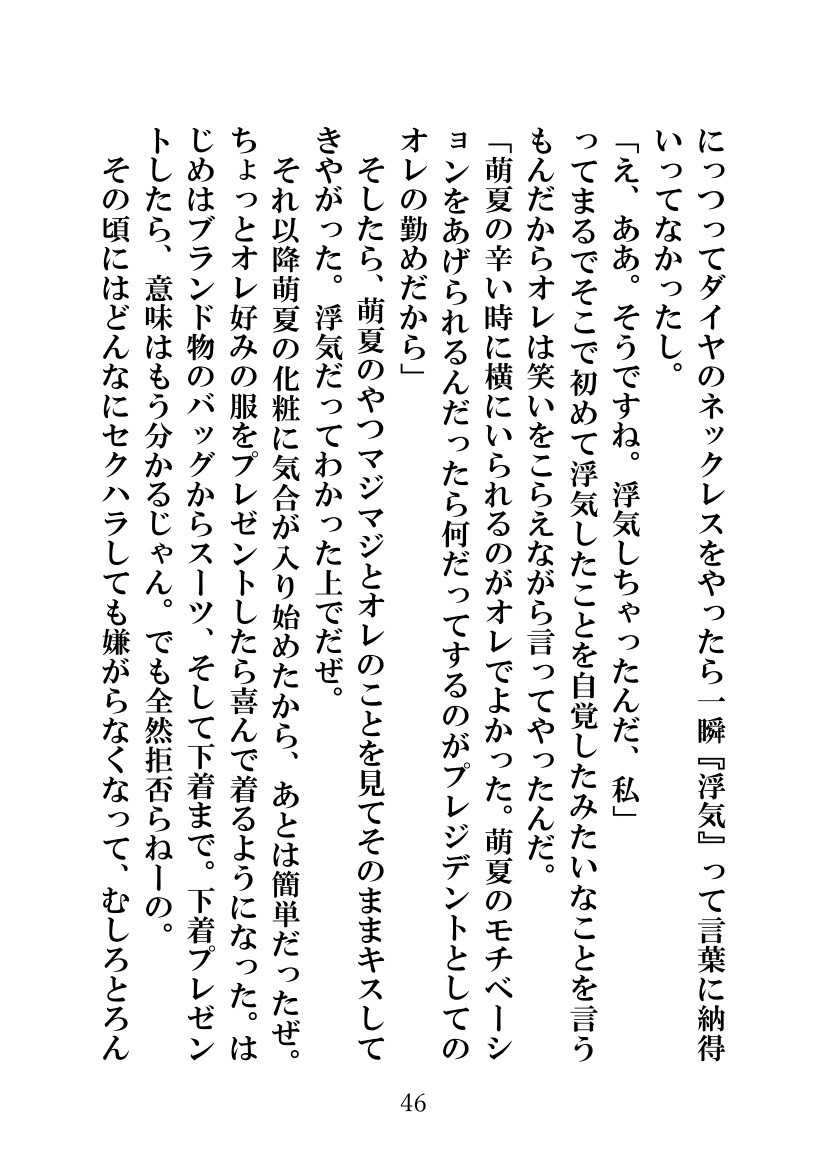 にっつってダイヤのネックレスをやったら一瞬『浮気』って言葉に納得
いってなかったし。
「え、ああ。そうですね。浮気しちゃったんだ、私」
ってまるでそこで初めて浮気したことを自覚したみたいなことを言う
もんだからオレは笑いをこらえながら言ってやったんだ。
「萌夏の辛い時に横にいられるのがオレでよかった。萌夏のモチベーシ
ョンをあげられるんだったら何だってするのがプレジデントとしての
オレの勤めだから」
そしたら、萌夏のやつマジマジとオレのことを見てそのままキスして
きやがった。浮気だってわかった上でだぜ。
それ以降萌夏の化粧に気合が入り始めたから、あとは簡単だったぜ。
ちょっとオレ好みの服をプレゼントしたら喜んで着るようになった。は
じめはブランド物のバッグからスーツ、そして下着まで。下着プレゼン
トしたら、意味はもう分かるじゃん。でも全然拒否らねーの。
その頃にはどんなにセクハラしても嫌がらなくなって、むしろとろん
46